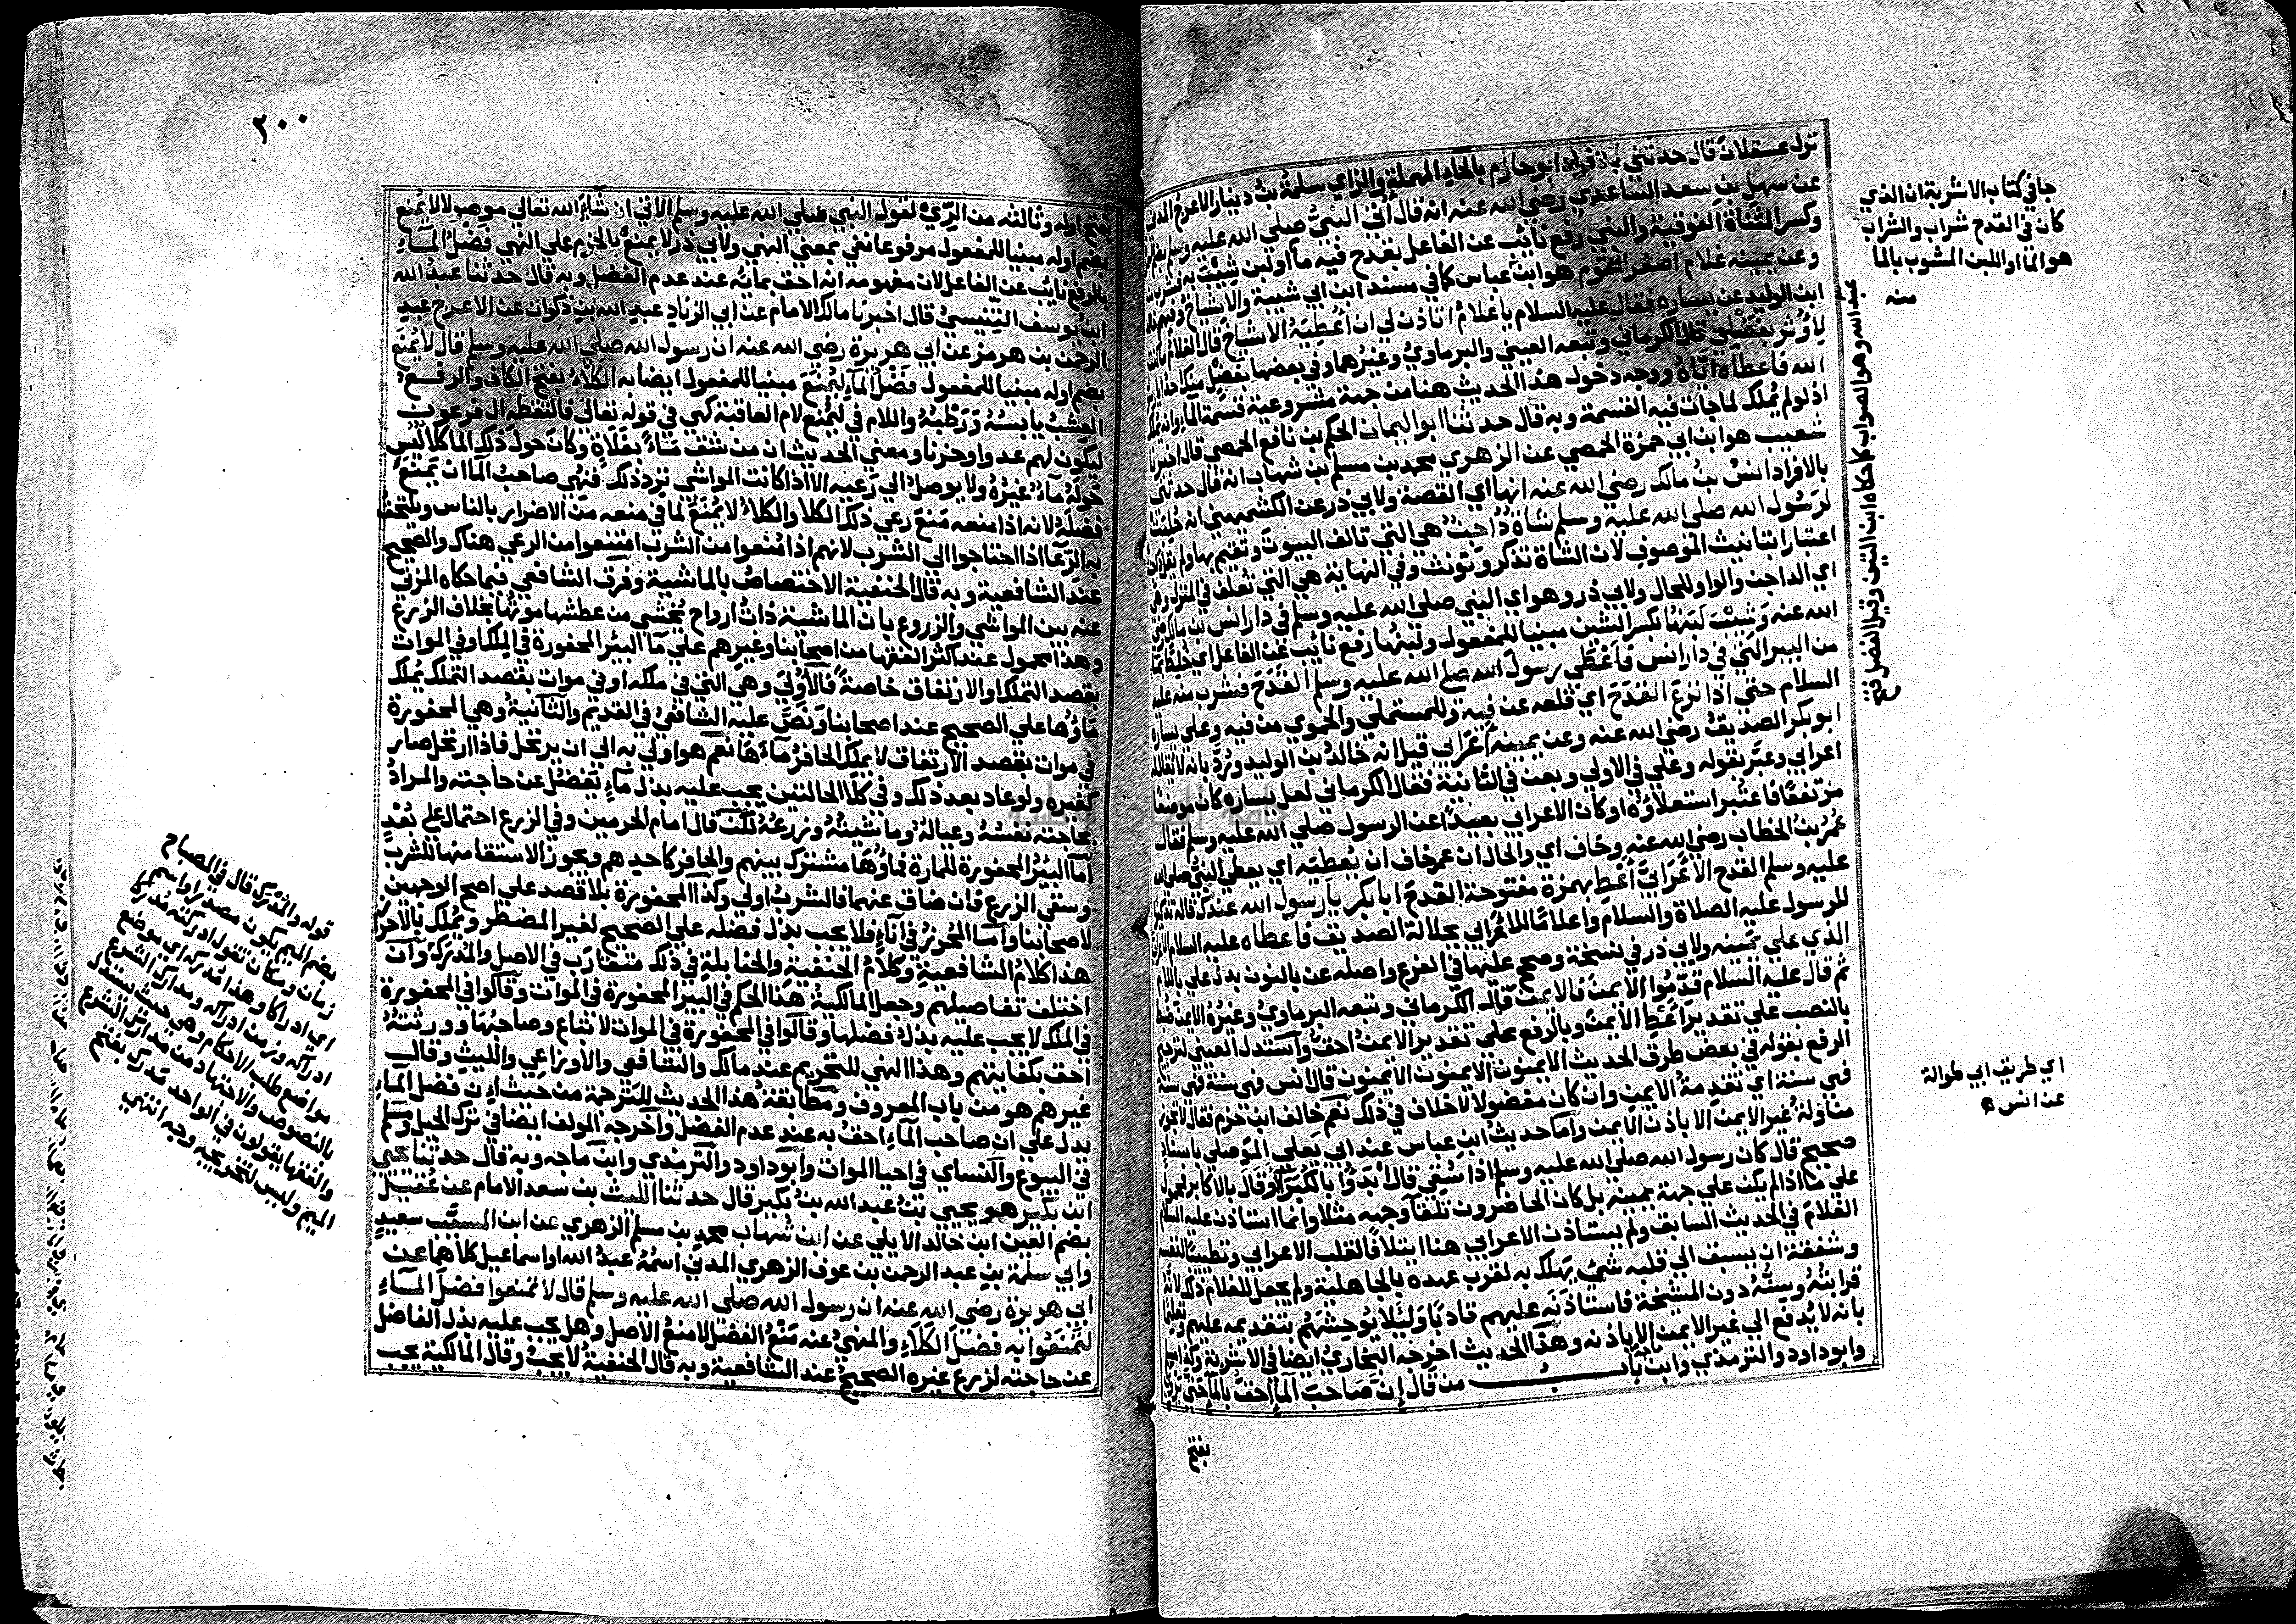 نزل عسقلان قال حدثني بالافراد ابو حازم بالحاء المهملة والزاي سلمة بن دينار الاعرج المدني
عن سهل بن سعد الساعدي رضي الله عنه انه قال اتي النبي صلي الله عليه وسلم
وكسر المثناة الفوقية والنبي رفع نائب عن الفاعل بقدح فيه ماء ولبن شيب به فشرب منه
وعن يمينه غلام اصغر القوم هو ابن عباس كما في مسند ابن ابي شيبة والاشياخ
ابن الوليد عن يساره فقال عليه السلام يا غلام اتاذن لي ان اعطيه الاشياخ قال الغلام ما كنت
لاوثر بفضلي قال الكرماني وتبعه العيني والبرماوي وغيرهما وفي بعضها بفضل منك احدا
الله فاعطاه اياه ووجه دخول هذا الحديث هنا من جهة مشروعية قسمة الماء وانه يملك
اذ لو لم يملك لما جات فيه القسمة وبه قال حدثنا ابو اليمان الحكم بن نافع الحمصي قال اخبرنا
شعيب هو ابن ابي حمزة الحمصي عن الزهري محمد بن مسلم بن شهاب انه قال حدثني
بالافراد انس بن مالك رضي الله عنه انها اي القصة ولابي ذر عن الكشميهني انه حلبت
لرسول الله صلي الله عليه وسلم شاة داجن هي التي تالف البيوت وتقيم بها ولم يقل
اعتبارا بتانيث الموصوف لان الشاة تذكر وتونث وفي النهاية هي التي تعلف في المنزل وهي
اي الداجن والواو للحال ولابي ذر وهو اي النبي صلي الله عليه وسلم في دار انس بن مالك رضي
الله عنه وشيب لبنها بكسر الشين مبنيا للمفعول ولبنها رفع نائب عن الفاعل اي خلط بماء
من البير التي في دار انس فاعطي رسول الله صلي الله عليه وسلم القدح فشرب منه عليه
السلام حتي اذا نزع القدح اي قلعه عن فيه وللمستملي والحموي من فيه وعلي يساره
ابو بكر الصديق رضي الله عنه وعن يمينه اعرابي قيل انه خالد بن الوليد ورد بانه لا يقال له
اعرابي وعبر بقوله وعلي في الاولي وبعن في الثانية فقال الكرماني لعل يساره كان موضعا
مرتفعا فاعتبر استعلاؤه او كان الاعرابي بعيدا عن الرسول صلي الله عليه وسلم فقال
عمر بن الخطاب رضي الله عنه وخاف اي والحال ان عمر خاف ان يعطيه اي يعطي النبي صلي الله
عليه وسلم القدح الاعرابي اعط بهمزة مفتوحة القدح ابا بكر يا رسول الله عندك قاله تذكيرا
للرسول عليه الصلاة والسلام واعلاما للاعرابي بجلالة الصديق فاعطاه عليه السلام الاعرابي
الذي علي يمينه ولابي ذر في نسخة وصحح عليها في الفرع واصله عن بالنون بدل علي باللام
ثم قال عليه السلام قدموا الايمن فالايمن قاله الكرماني وتبعه البرماوي وغيره الايمن ضبط
بالنصب علي تقدير اعط الايمن وبالرفع علي تقدير الايمن احق واستدل العيني لترجيح
الرفع بقوله في بعض طرق الحديث الايمنون الايمنون الايمنون قال انس فهي سنة فهي سنة
فهي سنة اي تقدمة الايمن وان كان مفضولا لا خلاف في ذلك نعم خالف ابن حزم فقال لا يجوز
مناولة غير الايمن الا باذن الايمن واما حديث ابن عباس عند ابي يعلي الموصلي باسناد
صحيح قال كان رسول الله صلي الله عليه وسلم اذا سقي قال ابدوا بالكبراء او قال بالاكابر فمحمول
علي ما اذا لم يكن علي جهة يمينه بل كان الحاضرون تلقا وجهه مثلا وانما استاذن عليه السلام
الغلام في الحديث السابق ولم يستاذن الاعرابي هنا ايتلافا لقلب الاعرابي وتطييبا لنفسه
وشفقة ان يسبق الي قلبه شي يهلك به لقرب عهده بالجاهلية ولم يجعل للغلام ذلك لانه
قرابته وسنه دون المشيخة فاستاذنه عليهم تادبا ولئلا يوحشهم بتقديمه عليهم وتعليما
بانه لا يدفع الي غير الايمن الا باذنه وهذا الحديث اخرجه البخاري ايضا في الاشربة وكذا
وابو داود والترمذي وابن ماجه باب من قال ان صاحب الماء احق بالماء حتي يروي
يفتح
جا في كتاب الاشربة ان الذي
كان في القدح شراب والشراب
هو الما او اللبن المشوب بالما
منه
عبد الله وهو الصواب كما حكاه ابن التين وقيل الفضل فتح
اي طريق ابي طوالة
عن انس
٢٠٠
بفتح اوله وثالثه من الري لقول النبي صلي الله عليه وسلم الاتي ان شاء الله تعالي موصولا لا يمنع
بضم اوله مبنيا للمفعول مرفوعا نفي بمعني النهي ولابي ذر لا يمنع بالجزم علي النهي فضل الماء
بالرفع نائب عن الفاعل لان مفهومه انه احق بمائه عند عدم الفضل وبه قال حدثنا عبد الله
ابن يوسف التنيسي قال اخبرنا مالك الامام عن ابي الزناد عبد الله بن ذكوان عن الاعرج عبد
الرحمن بن هرمز عن ابي هريرة رضي الله عنه ان رسول الله صلي الله عليه وسلم قال لا يمنع
بضم اوله مبنيا للمفعول فضل الماء ليمنع مبنيا للمفعول ايضا به الكلاء بفتح الكاف والرفع
العشب يابسه ورطبه واللام في ليمنع لام العاقبة كهي في قوله تعالي فالتقطه ال فرعون
ليكون لهم عدوا وحزنا ومعني الحديث ان من شق ماء بفلاة وكان حول ذلك الما كلا ليس
حوله ماء غيره ولا يوصل الي رعيه الا اذا كانت المواشي ترد ذلك فنهي صاحب الما ان يمنع
فضله لانه اذا منعه منع رعي ذلك الكلا والكلاء لا يمنع لما في منعه من الاضرار بالناس ويلتحق
به الرعا اذا احتاجوا الي الشرب لانهم اذا منعوا من الشرب امتنعوا من الرعي هناك والصحيح
عند الشافعية وبه قال الحنفية الاختصاص بالماشية وفرق الشافعي فيما حكاه المزني
عنه بين المواشي والزروع بان الماشية ذات ارواح يخشي من عطشها موتها بخلاف الزرع
وهذا محمول عند اكثر الفقها من اصحابنا وغيرهم علي ماء البير المحفورة في الملك او في الموات
بقصد التملك او الارتفاق خاصة فالاولي وهي التي في ملكه او في موات بقصد التملك يملك
ماؤها علي الصحيح عند اصحابنا ونص عليه الشافعي في القديم والثانية وهي المحفورة
في موات بقصد الارتفاق لا يملك الحافر ماءها نعم هو اولي به الي ان يرتحل فاذا ارتحل صار
كغيره ولو عاد بعد ذلك وفي كلا الحالتين يجب عليه بذل ماء يفضل عن حاجته والمراد
بحاجته نفسه وعياله وماشيته وزرعه لكن قال امام الحرمين وفي الزرع احتمال علي بعد
اما البير المحفورة للمارة فماؤها مشترك بينهم والحافر كاحدهم ويجوز الاستقا منها للشرب
وسقي الزرع فان ضاق عنهما فالشرب اولي وكذا المحفورة بلا قصد علي اصح الوجهين
لاصحابنا واما المحرز في اناء فلا يجب بذل فضله علي الصحيح لغير المضطر ويملك بالاحراز
هذا كلام الشافعية وكلام الحنفية والحنابلة في ذلك متقارب في الاصل والمدرك وان
اختلفت تفاصيلهم وجعل المالكية هذا الحكم في البير المحفورة في الموات وقالوا في المحفورة
في الملك لا يجب عليه بذل فضلها وقالوا في المحفورة في الموات لا تباع وصاحبها وورثته
احق بكفايتهم وهذا النهي للتحريم عند مالك والشافعي والاوزاعي والليث وقال
غيرهم هو من باب المعروف ومطابقة هذا الحديث للترجمة من حيث ان فضل الماء
يدل علي ان صاحب الماء احق به عند عدم الفضل واخرجه المولف ايضا في ترك الحيل ومسلم
في البيوع والنساي في احيا الموات وابو داود والترمذي وابن ماجه وبه قال حدثنا يحيي
ابن بكير هو يحيي بن عبد الله بن بكير قال حدثنا الليث بن سعد الامام عن عقيل
بضم العين ابن خالد الايلي عن ابن شهاب محمد بن مسلم الزهري عن ابن المسيب سعيد
وابي سلمة بن عبد الرحمن بن عوف الزهري المدني اسمه عبد الله او اسماعيل كلاهما عن
ابي هريرة رضي الله عنه ان رسول الله صلي الله عليه وسلم قال لا تمنعوا فضل الماء
لتمنعوا به فضل الكلاء والمنهي عنه منع الفضل لا منع الاصل وهل يجب عليه بذل الفاضل
عن حاجته لزرع غيره الصحيح عند الشافعية وبه قال الحنفية لا يجب وقال المالكية يجب
قوله والمدرك قال في المصباح
بضم الميم يكون مصدرا واسم
زمان ومكان تقول ادركته مدركا
اي ادراكا وهذا مدركه اي موضع
ادراكه وزمن ادراكه ومدارك الشرع
مواضع طلب الاحكام وهي حيث يستدل
بالنصوص والاجتهاد من مدارك الشرع
والفقها يقولون في الواحد مدرك بفتح
الميم وليس لتخريجه وجه انتهي